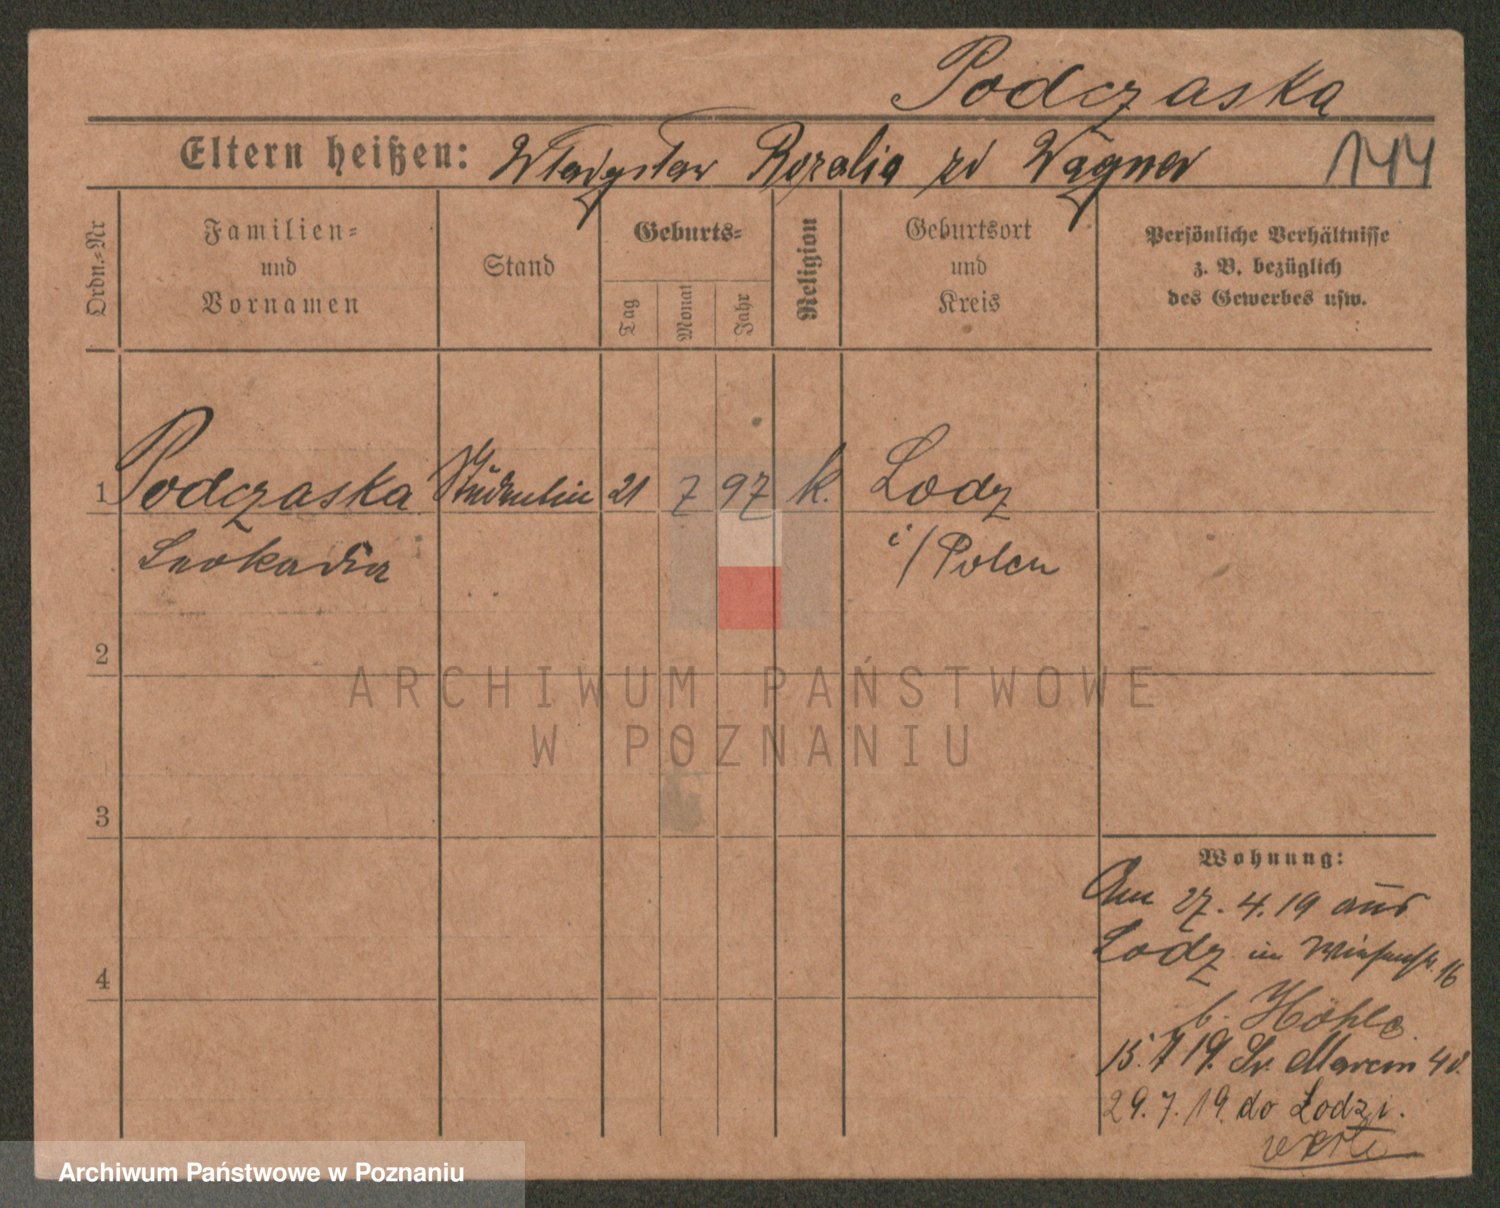 Podczaska
Eltern heißen: Władysław Rozalia zd Wagner 144
Ordn.-Nr
Familien-
und
Vornamen
Stand
Geburts-
Tag
Monat
Jahr
Religion
Geburtsort
und
Kreis
Persönliche Verhältnisse
z. B. bezüglich
des Gewerbes usw.
1 Podczaska Studentin 21 7 97 k. Lodz
Leokadia i/Polen
2
3
4
Wohnung:
Am 27.4.19 aus
Lodz in Wiesenstr. 16
b. Höhle
15.7 19. Św. Marcin 40.
29.7.19. do Łodzi.
verte
ARCHIWUM PAŃSTWOWE
W POZNANIU
Archiwum Państwowe w Poznaniu